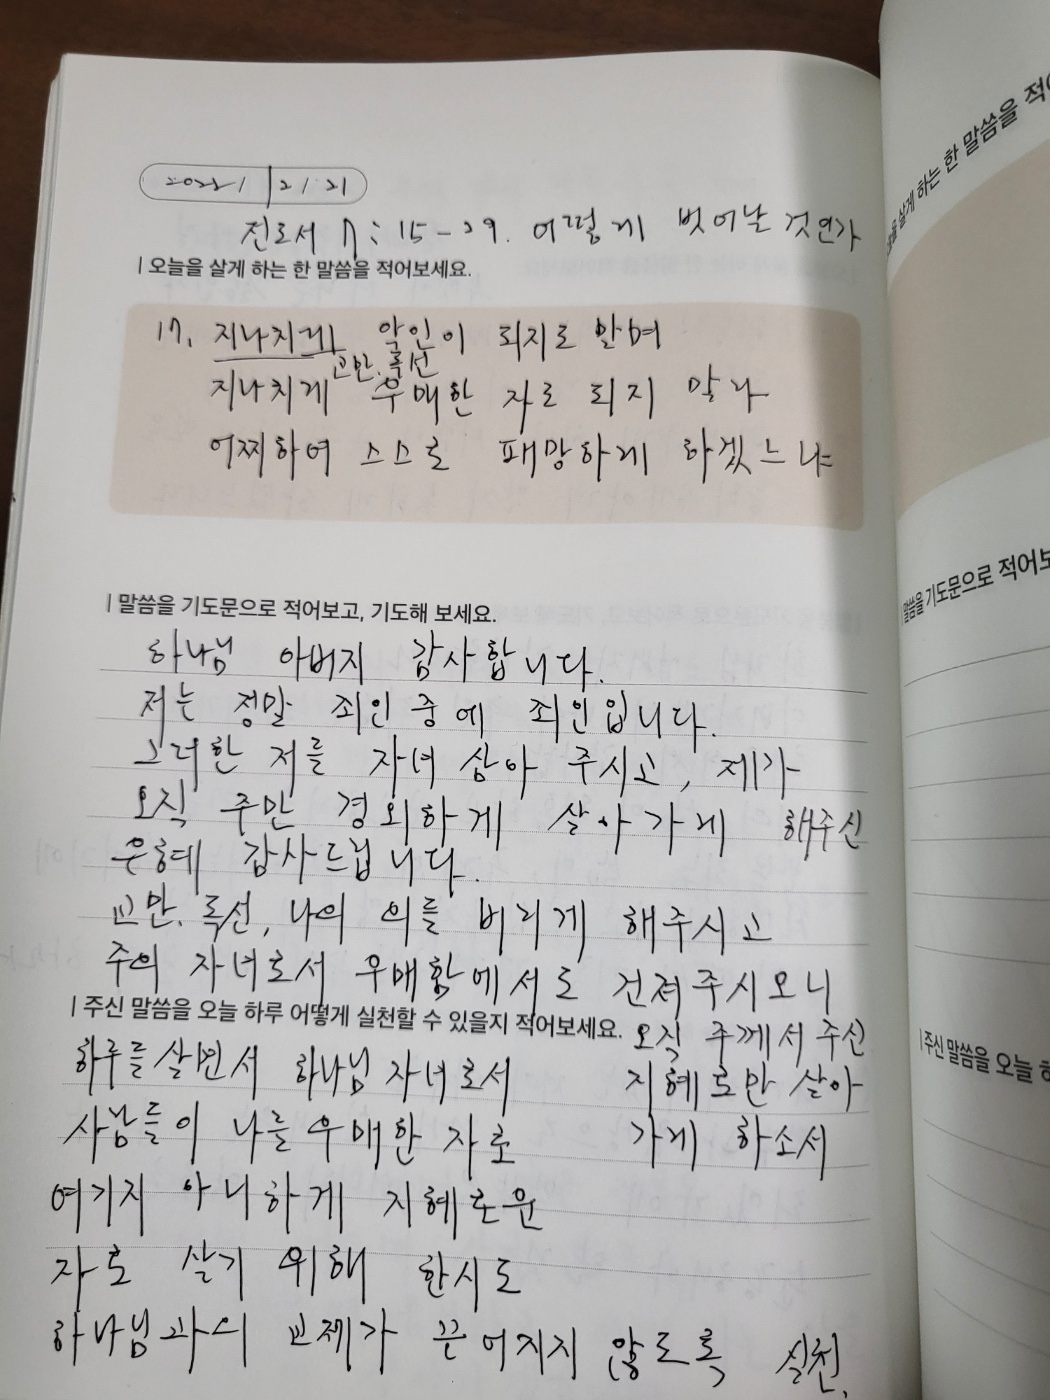 2022 / 12 / 21
진로서 7 : 15 - 29. 어떻게 벗어날 것인가
| 오늘을 살게 하는 한 말씀을 적어보세요.
17. 지나치게 악인이 되지도 말며
교만. 독선
지나치게 우매한 자도 되지 말라
어찌하여 스스로 패망하게 하겠느냐
| 말씀을 기도문으로 적어보고, 기도해 보세요.
하나님 아버지 감사합니다.
저는 정말 죄인 중에 죄인입니다.
그러한 저를 자녀 삼아 주시고, 제가
오직 주만 경외하게 살아가게 해주신
은혜 감사드립니다.
교만. 독선, 나의 의를 버리게 해주시고
주의 자녀로서 우매함에서도 건져주시오니
오직 주께서 주신
지혜로만 살아
가게 하소서
| 주신 말씀을 오늘 하루 어떻게 실천할 수 있을지 적어보세요.
하루를 살면서 하나님 자녀로서
사람들이 나를 우매한 자로
여기지 아니하게 지혜로운
자로 살기 위해 한시도
하나님과의 교제가 끈어지지 않도록 실천.
살게 하는 한 말씀을 적어
말씀을 기도문으로 적어보
| 주신 말씀을 오늘 하